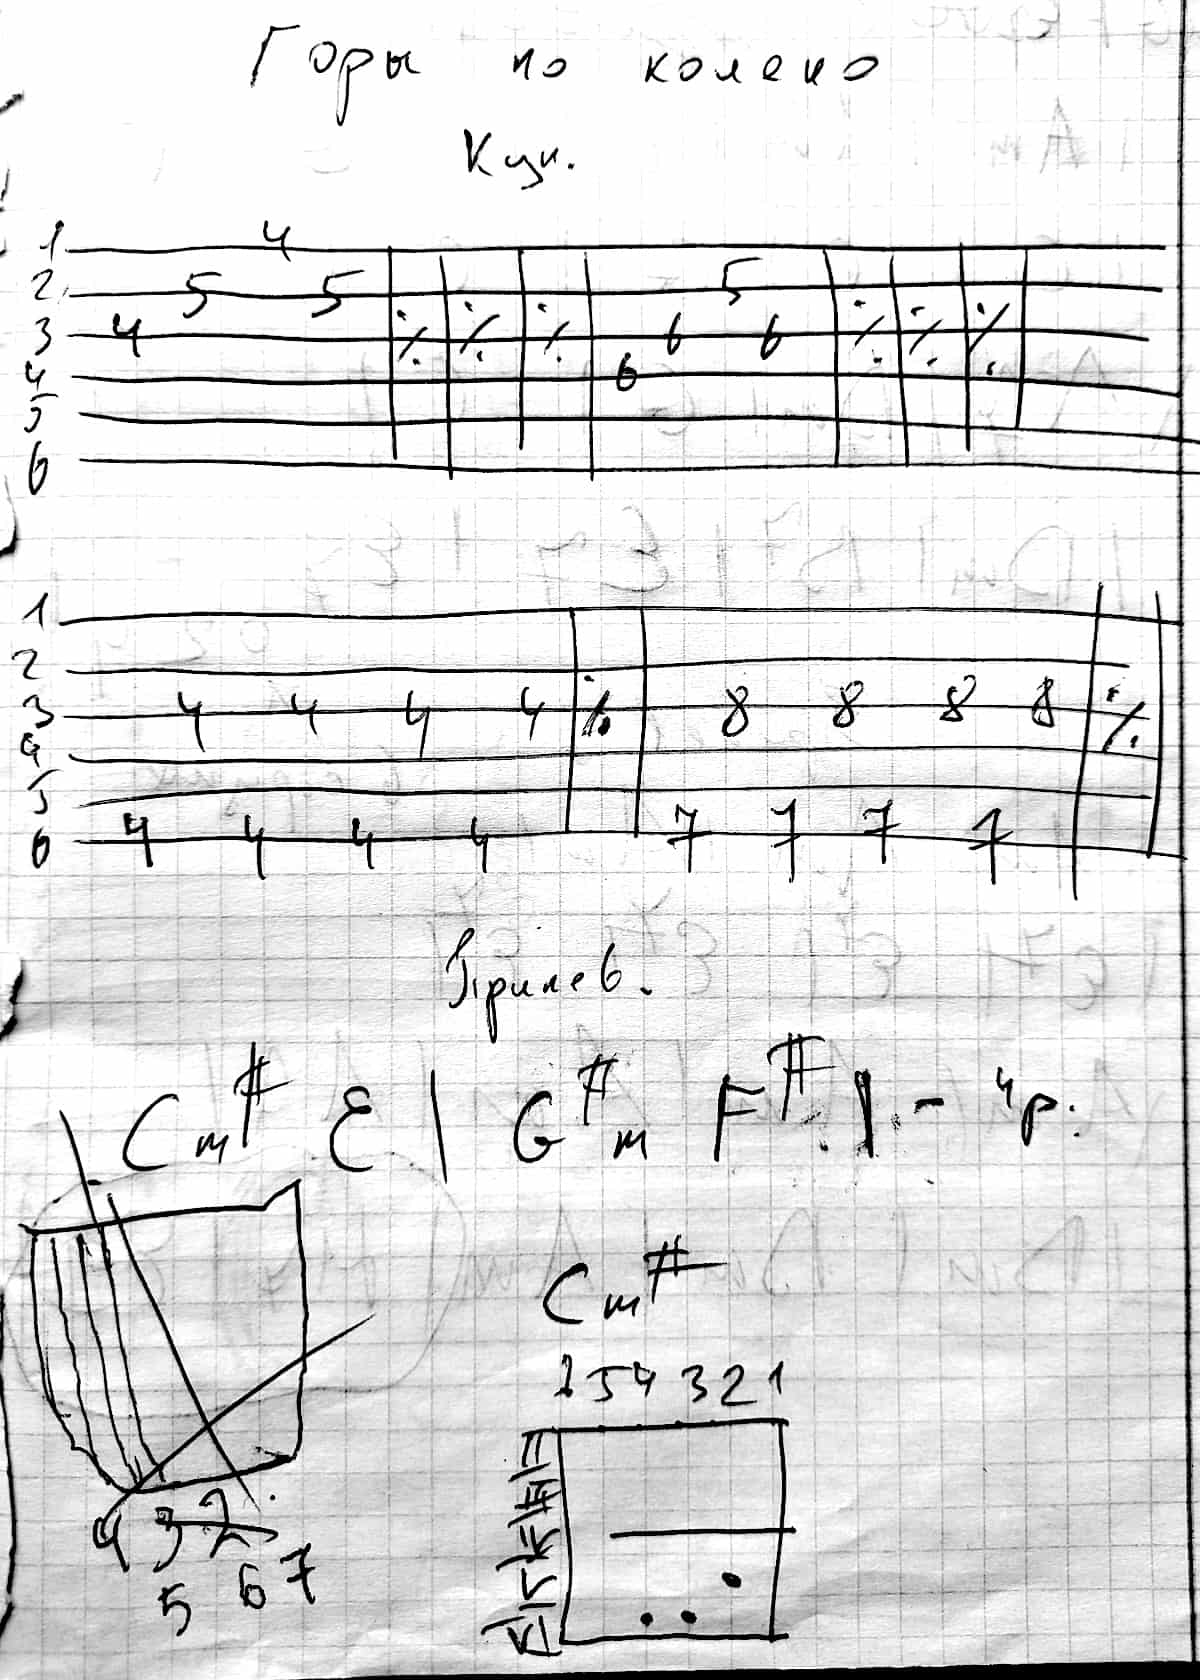 Горы по колено
Куп.
1 4
2 5 5 5
3 4 ٪ ٪ ٪ 6 6 ٪ ٪ ٪
4 6
5
6
1
2
3 4 4 4 4 ٪ 8 8 8 8 ٪
4
5
6 4 4 4 4 7 7 7 7
Припев.
Cm# E | G#m F# | - 4р.
Cm#
5 4 3 2 1
4 3 2
5 6 7